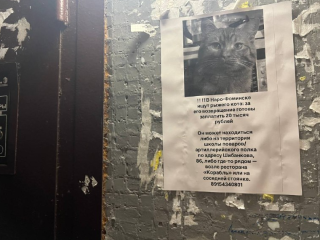 В ПВ Наро-Фоминске
ищут рыжего кота: за
его возвращение готовы
заплатить 20 тысяч
рублей
Он может находиться
либо на территории
школы поваров/
артиллерийского полка
по адресу Шибанкова,
86, либо где-то рядом —
возле ресторана
«Корабль» или на
соседней стоянке.
89154340801